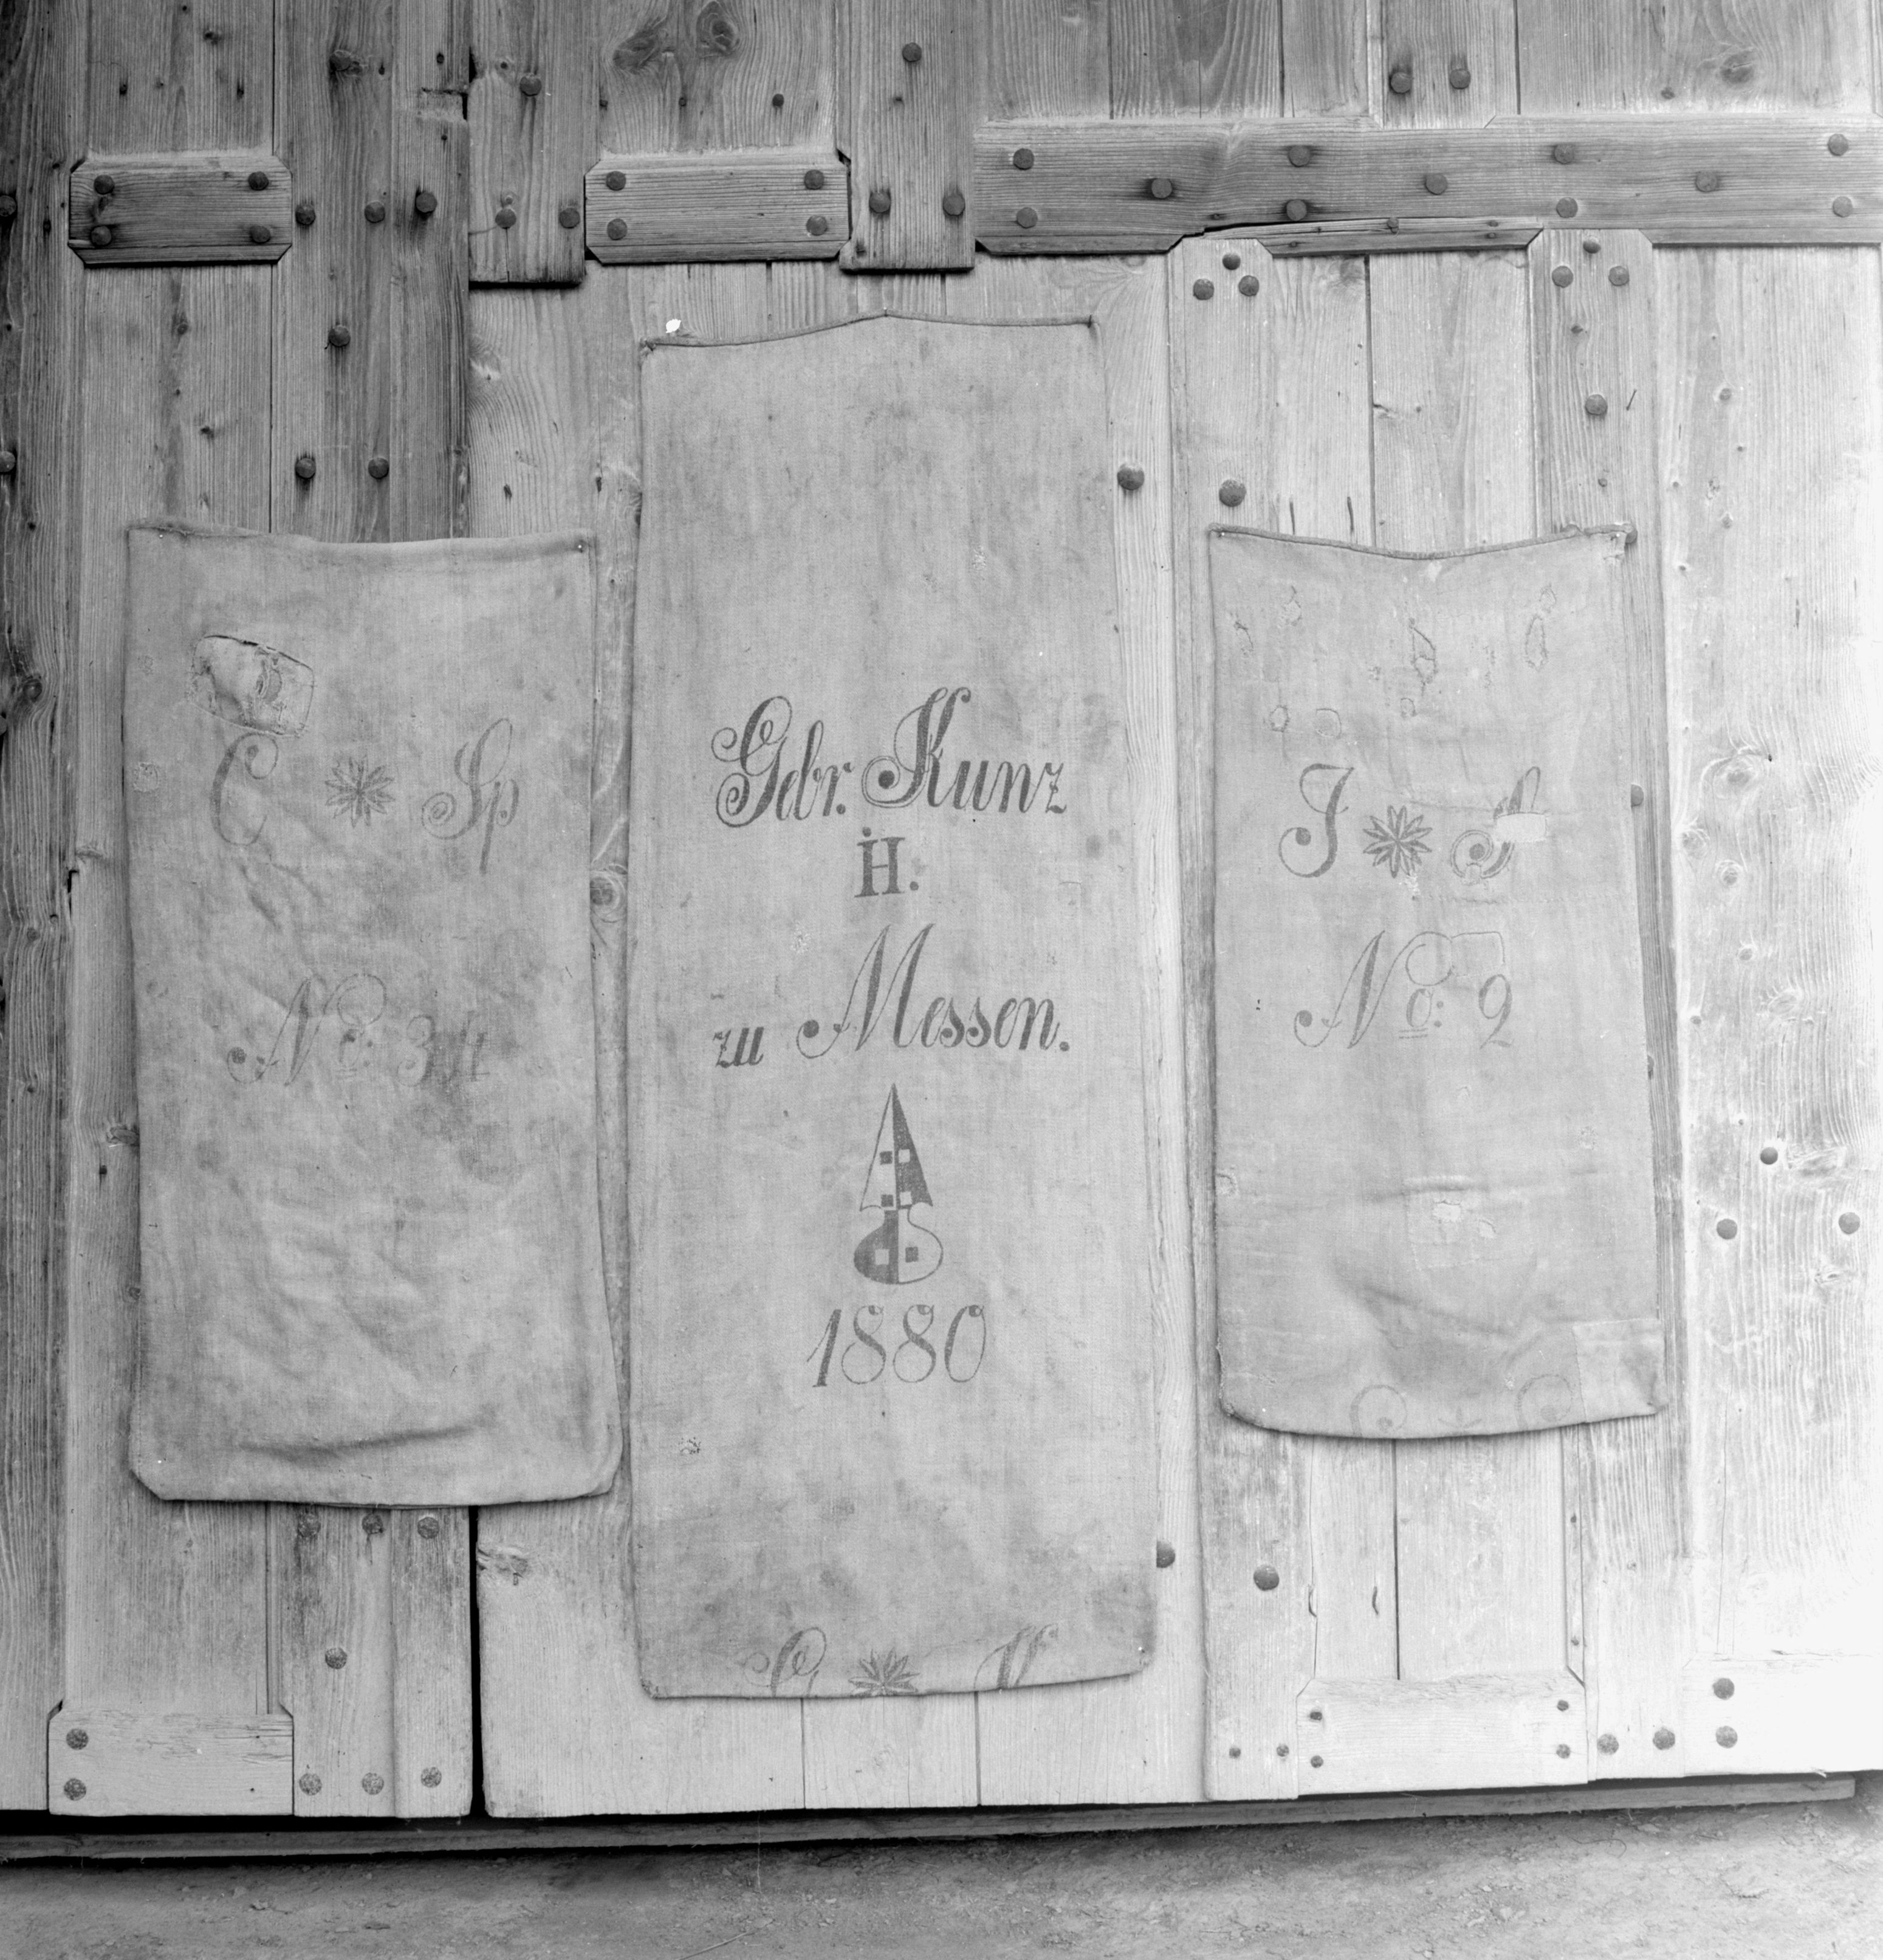 C Sp
No: 34
Gebr. Kunz
iH.
zu Messen.
1880
G K
J
No: 2